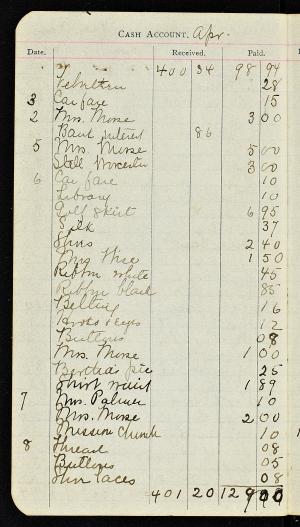 CASH ACCOUNT. Apr.
Date. Received. Paid.
" " " 400 34 98 94
28
3 Car fare 15
2 Mrs. Morse 3 00
Bank interest 86
5 Mrs. Morse 5 00
Worcester 3 00
6 Car fare 10
Library 10
Golf Skirt 6 95
Silk 37
Shoes 2 40
1 50
Ribbon white 45
Ribbon black 85
Belting 16
Hooks & eyes 12
Buttons 08
Mrs. Morse 1 00
Bertha's pic 25
Shirt waist 1 89
7 Mrs. Palmer 10
Mrs. Morse 2 00
Mission Church 10
8 Thread 08
Buttons 05
Shoe laces 08
401 20 129 00